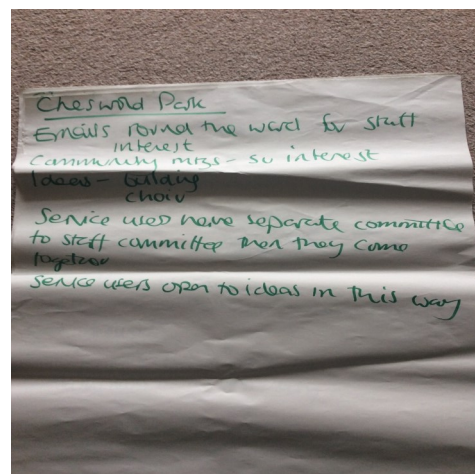 Cheswold Park
Emails round the ward for staff
interest
Community mtgs - su interest
Ideas -
choir
Service uses have separate committee
to staff committee then they come
together
Service users open to ideas in this way